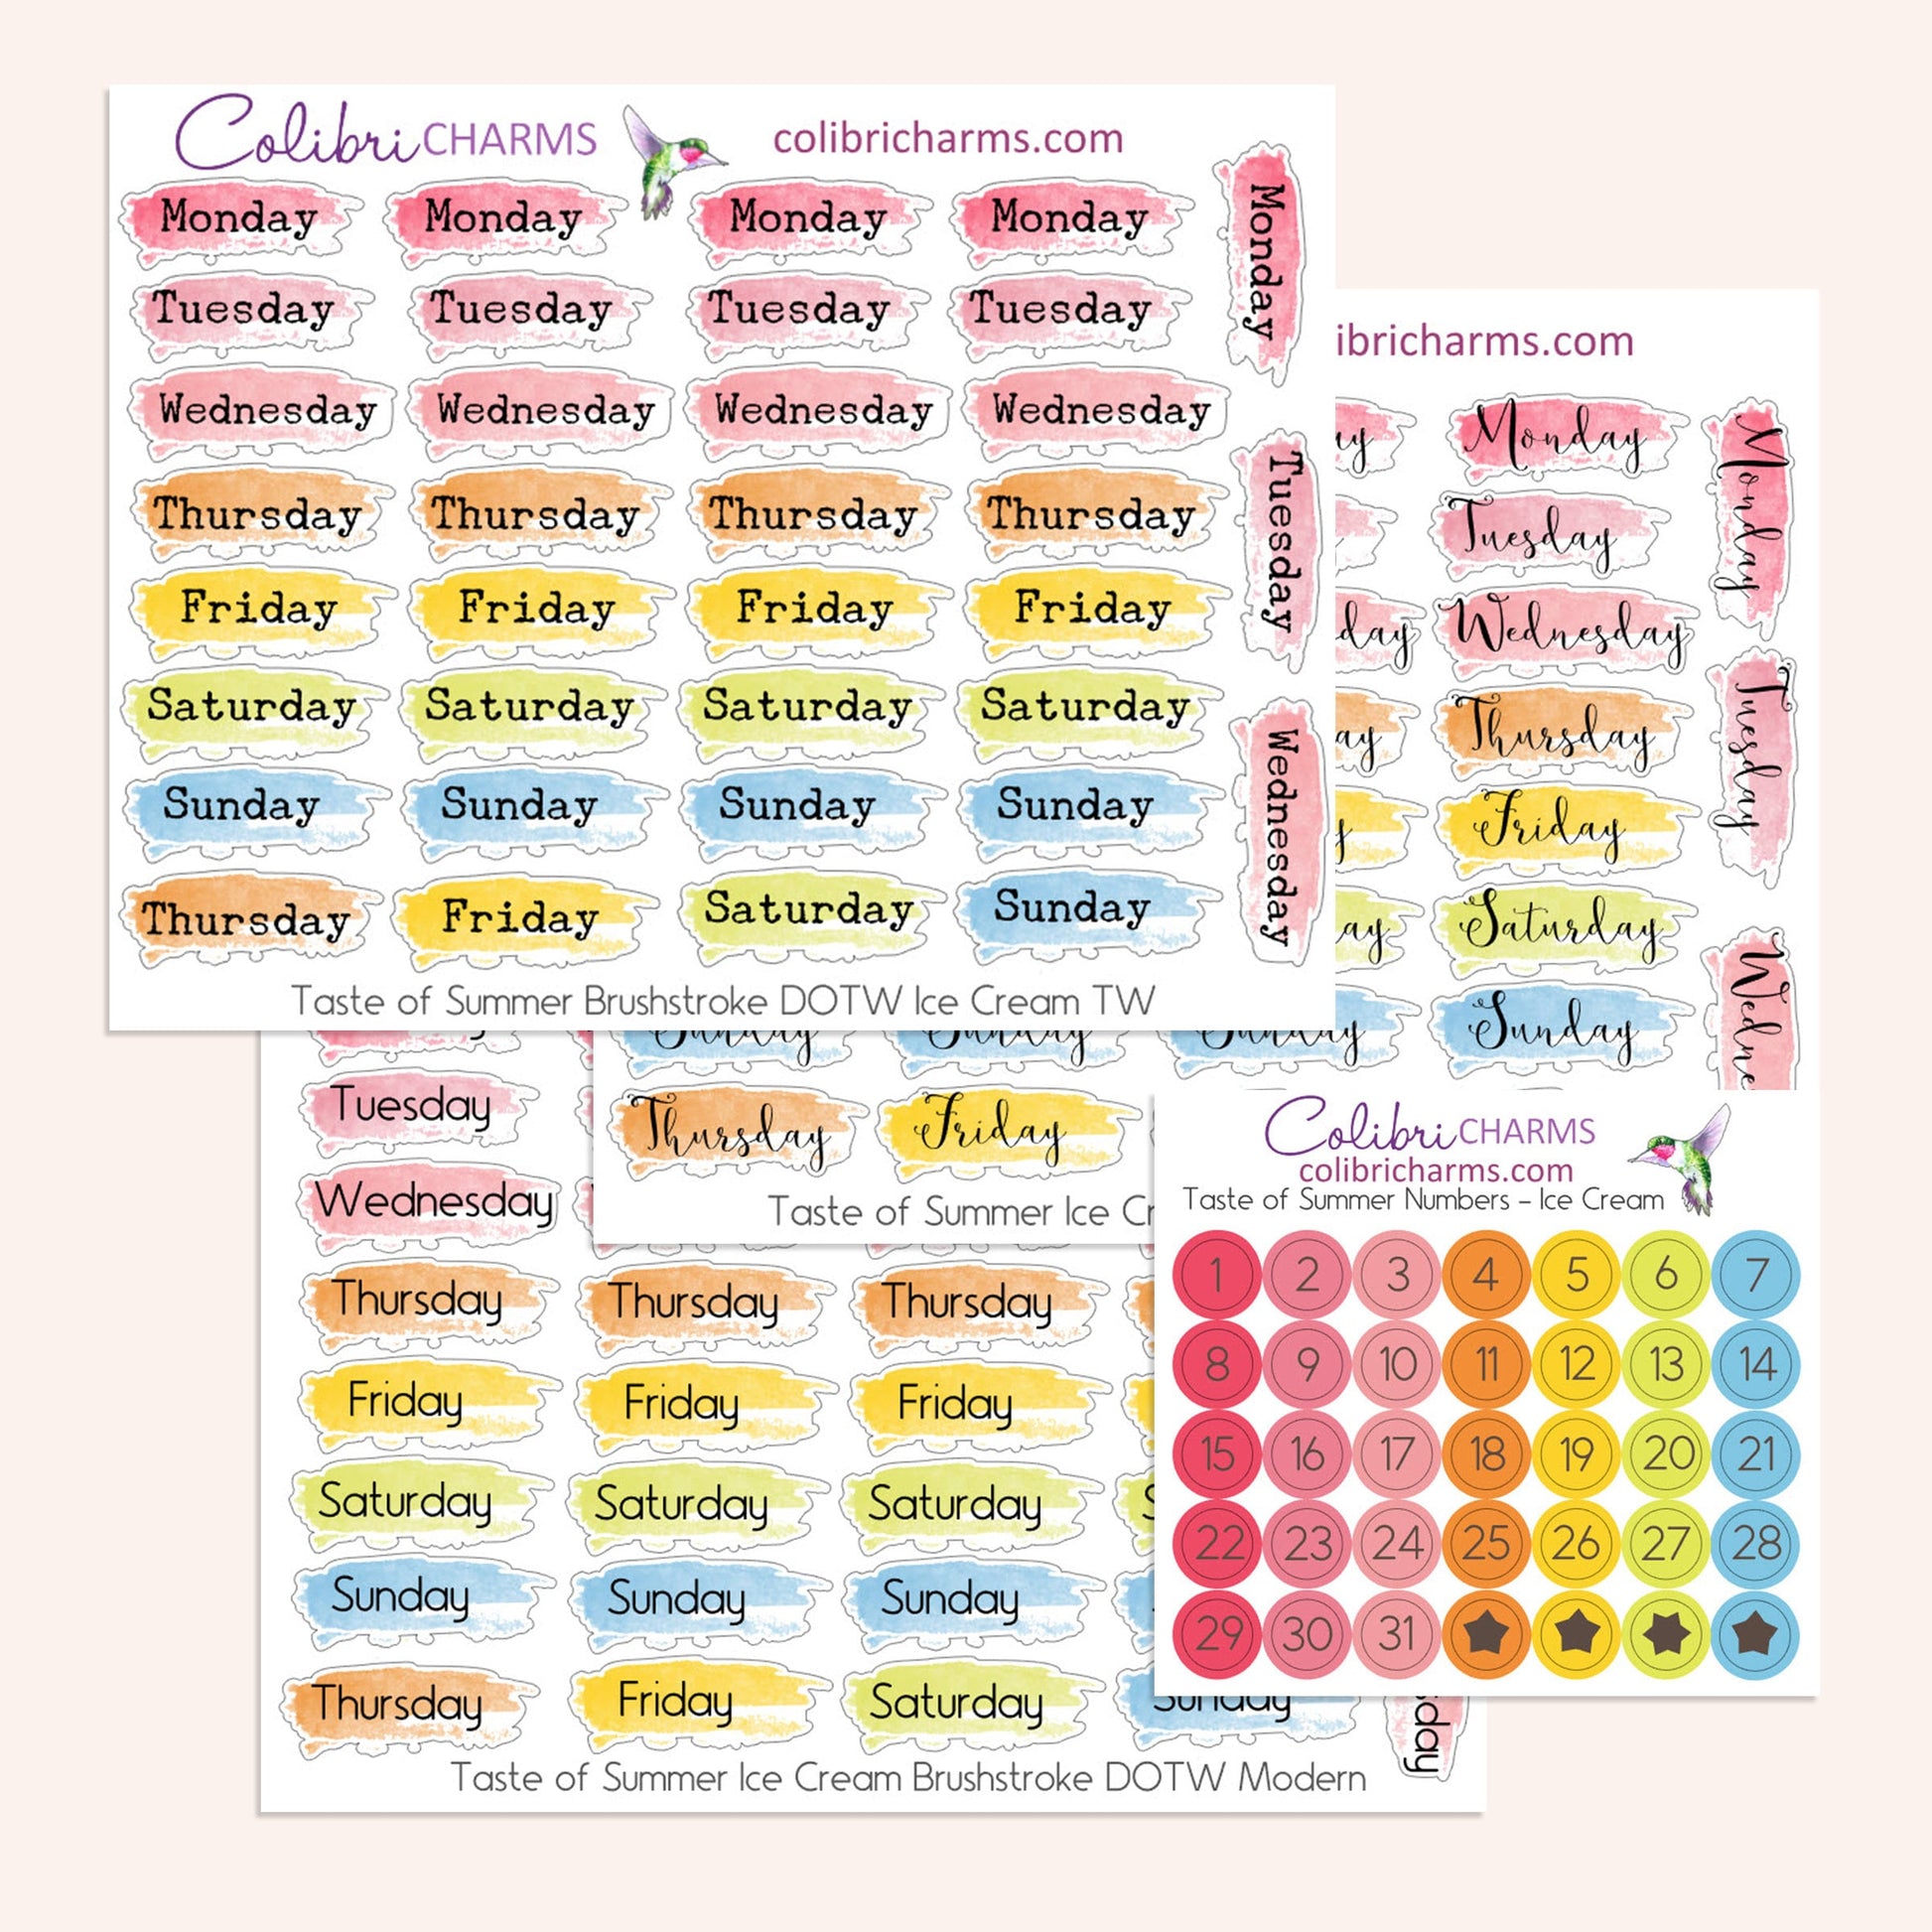 Colibri CHARMS colibricharms.com
Monday Monday Monday Monday Monday
Tuesday Tuesday Tuesday Tuesday
Wednesday Wednesday Wednesday Wednesday
Tuesday
Thursday Thursday Thursday Thursday
Friday Friday Friday Friday
Saturday Saturday Saturday Saturday
Wednesday
Sunday Sunday Sunday Sunday
Thursday Friday Saturday Sunday
Taste of Summer Brushstroke DOTW Ice Cream TW
ibricharms.com
ay Monday Monday
Tuesday
day Wednesday
ay Thursday Tuesday
y Friday
ay Saturday
Wedne
Sunday Sunday Sunday Sunday
Thursday Friday
Taste of Summer Ice Cr
Colibri CHARMS
colibricharms.com
Taste of Summer Numbers – Ice Cream
1 2 3 4 5 6 7
8 9 10 11 12 13 14
15 16 17 18 19 20 21
22 23 24 25 26 27 28
29 30 31
Tuesday
Wednesday
Thursday Thursday Thursday
Friday Friday Friday
Saturday Saturday Saturday S
Sunday Sunday Sunday
Thursday Friday Saturday Sunday
day
Taste of Summer Ice Cream Brushstroke DOTW Modern